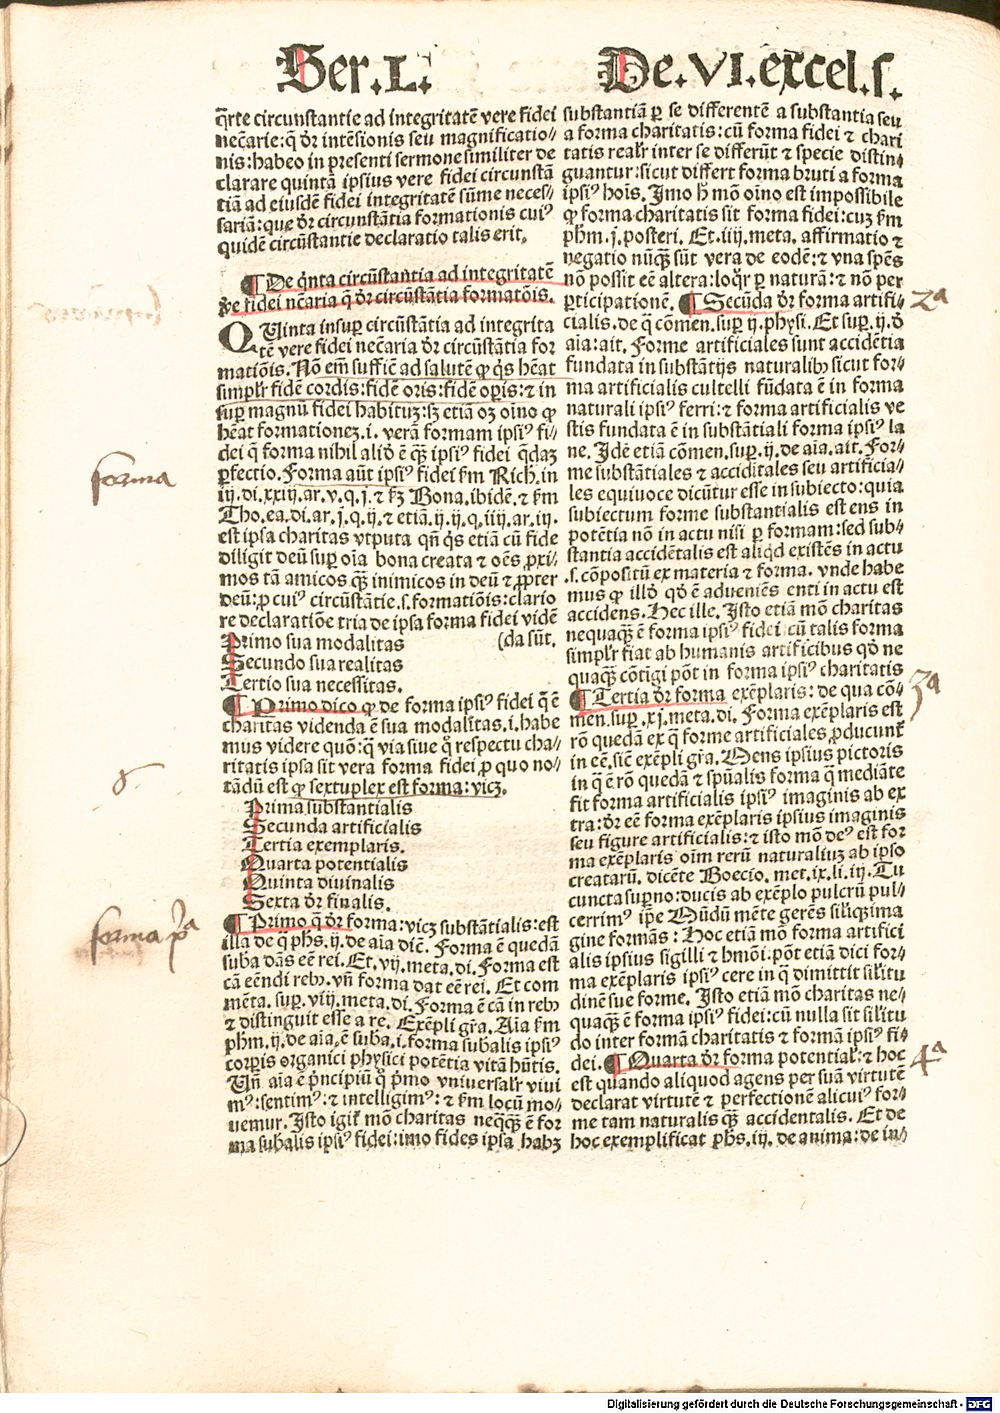 Ser. L.
De. VI. excel. s.
q̄rte circūstantie ad integritatē vere fidei
nec̄arie: q̄ dr̄ intēsionis seu magnificatio⸗
nis: habeo in presenti sermone similiter de
clarare quintā ipsius vere fidei circunstā
tiā ad eiusdē fidei integritatē sūme neces⸗
sariā: que dr̄ circūstātia formationis cuiꝰ
quidē circūstantie declaratio talis erit.
¶ De q̇nta circūstantia ad integritatē
ve fidei nec̄aria q̄ dr̄ circūstātia formatōis.
QUinta insuꝑ circūstātia ad integrita
tē vere fidei nec̄aria dr̄ circūstātia for
matiōis. Nō em̄ suffic̄ ad salutē ꝙ q̇s hēat
simplr̄ fidē cordis: fidē oris: fidē oꝑis: ⁊ in
suꝑ magnū fidei habituꝫ: sꝫ etiā oꝫ oīno ꝙ
hēat formationeꝫ. i. verā formam ipsiꝰ fi⸗
dei q̄ forma nihil aliḋ ē qꝫ̄ ipsiꝰ fidei q̇daꝫ
ꝑfectio. Forma aūt ipsiꝰ fidei ẜm Rich. in
iij. di. xxiij. ar. v. q. j. ⁊ ẜꝫ Bona. ibidē. ⁊ ẜm
Tho. ea. di. ar. j. q. ij. ⁊ etiā. ij. ij. q. iiij. ar. iij.
est ipsa charitas vtputa qn̄ q̇s etiā cū fide
diligit deū suꝑ oīa bona creata ⁊ oēs ꝓxi⸗
mos tā amicos qꝫ̄ inimicos in deū ⁊ ꝓpter
deū: ꝓ cuiꝰ circūstātie. s. formatiōis: clario
re declaratiōe tria de ipsa forma fidei vidē
Primo sua modalitas (da sūt.
Secundo sua realitas
Tertio sua necessitas.
¶ Primo dico ꝙ de forma ipsiꝰ fidei q̄ ē
charitas videnda ē sua modalitas. i. habe
mus videre quō: q̄ via siue q̄ respectu cha⸗
ritatis ipsa sit vera forma fidei ꝓ quo no⸗
tādū est ꝙ sextuplex est forma: vicꝫ.
Prima substantialis
Secunda artificialis
Tertia exemplaris.
Quarta potentialis
Quinta diuinalis
Sexta dr̄ finalis.
¶ Primo q̄ dr̄ forma: vicꝫ substātialis: est
illa de q̄ phs. ij. de aīa dic̄. Forma ē quedā
suba dās eē rei. Et. vij. meta. di. Forma est
cā eēndi rebꝰ. vn̄ forma dat eē rei. Et com
mēta. suꝑ. viij. meta. di. Forma ē cā in rebꝰ
⁊ distinguit esse a re. Exēpli gr̄a. Aīa ẜm
phm̄. ij. de aīa. ē suba. i. forma subalis ipsiꝰ
corꝑis organici physici potētia vitā hn̄tis.
Un̄ aīa ē pͥncipiū q̇ pͥmo vniuersalr̄ viui
mꝰ: sentimꝰ: ⁊ intelligimꝰ: ⁊ ẜm locū mo⸗
uemur. Isto igit̄ mō charitas neqꝫ̄qꝫ ē for
ma subalis ipsiꝰ fidei: imo fides ipsa habꝫ
substantiā ꝑ se differentē a substantia seu
a forma charitatis: cū forma fidei ⁊ chari
tatis realr̄ inter se differūt ⁊ specie distin⸗
guantur: sicut differt forma bruti a forma
ipsiꝰ hoīs. Imo h̄ mō oīno est impossibile
ꝙ forma charitatis sit forma fidei: cuꝫ ẜm
phm̄. j. posteri. Et. iiij. meta. affirmatio ⁊
negatio nūqꝫ̄ sūt vera de eodē: ⁊ vna spēs
nō possit eē altera: loqͦr ꝑ naturā: ⁊ nō per
ꝑticipationē. ¶ Secūda dr̄ forma artifi⸗
cialis. de q̄ cōmen. suꝑ ij. physi. Et suꝑ. ij. ḋ
aīa: ait. Forme artificiales sunt accidētia
fundata in substātijs naturalibꝰ sicut for⸗
ma artificialis cultelli fūdata ē in forma
naturali ipsiꝰ ferri: ⁊ forma artificialis ve
stis fundata ē in substātiali forma ipsiꝰ la
ne. Idē etiā cōmen. suꝑ. ij. de aīa. ait. For⸗
me substātiales ⁊ accidētales seu artificia⸗
les equiuoce dicūtur esse in subiecto: quia
subiectum forme substantialis est ens in
potētia nō in actu nisi ꝑ formam: sed sub⸗
stantia accidētalis est aliq̇d existēs in actu
.s. cōpositū ex materia ⁊ forma. vnde habe
mus ꝙ illḋ qḋ ē adueniēs enti in actu est
accidens. Hec ille. Isto etiā mō charitas
nequaqꝫ̄ ē forma ipsiꝰ fidei cū talis forma
simplr̄ fiat ab humanis artificibus qḋ ne
quaqꝫ̄ cōtīgi pōt in forma ipsiꝰ charitatis
¶ Tertia dr̄ forma exēplaris: de qua cō⸗
men. suꝑ. xj. meta. di. Forma exēplaris est
rō quedā ex q̄ forme artificiales ꝓducunt̄
in eē. sic̄ exēpli gr̄a. Mens ipsius pictoris
in q̄ ē rō quedā ⁊ spūalis forma q̄ mediāte
fit forma artificialis ipsiꝰ imaginis ab ex
tra: dr̄ eē forma exēplaris ipsius imaginis
seu figure artificialis: ⁊ isto mō deꝰ est for
ma exēplaris oīm rerū naturaliuꝫ ab ipso
creatarū. dicēte Boecio. met. ix. li. iij. Tu
cuncta suꝑno: ducis ab exēplo pulcrū pul⸗
cerrimꝰ ip̄e Mūdū mēte gerēs sil̄iqꝫ ima
gine formās: Hoc etiā mō forma artifici
alis ipsius sigilli ⁊ hmōi. pōt etiā dici for⸗
ma exēplaris ipsiꝰ cere in q̄ dimittit sil̄itu
dinē sue forme. Isto etiā mō charitas ne⸗
quaqꝫ̄ ē forma ipsiꝰ fidei: cū nulla sit sil̄itu
do inter formā charitatis ⁊ formā ipsiꝰ fi⸗
dei. ¶ Quarta dr̄ forma potential̄: ⁊ hoc
est quando aliquod agens per suā virtutē
declarat virtutē ⁊ perfectionē alicuiꝰ for⸗
me tam naturalis qꝫ̄ accidentalis. Et de
hoc exemplificat phs. iij. de anima: de in⸗
forma
forma pͣ
2ª
3ª
4ª
Digitalisierung gefördert durch die Deutsche Forschungsgemeinschaft - DFG